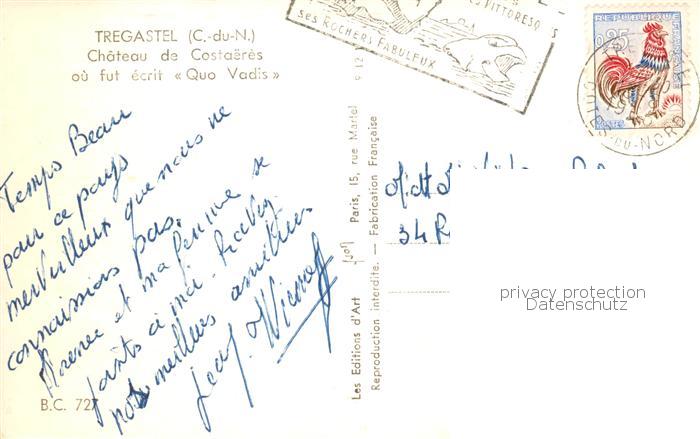 TREGASTEL (C.-du-N.)
Château de Costaërès
où fut écrit « Quo Vadis »
PITTORESQ
SES ROCHERS FABULEUX
REPUBLIQUE FRANÇAISE
0,25
POSTES
TES-DU-NORD
Temps Beau
pour ce pays
merveilleux que nous ne
connaissions pas.
et ma femme se
joints à moi.
nos meilleurs amitiés
Jean
Les Editions d'Art Jos Paris, 15, rue Martel 9-12
Reproduction interdite. — Fabrication Française
34 R
privacy protection
Datenschutz
B.C. 727